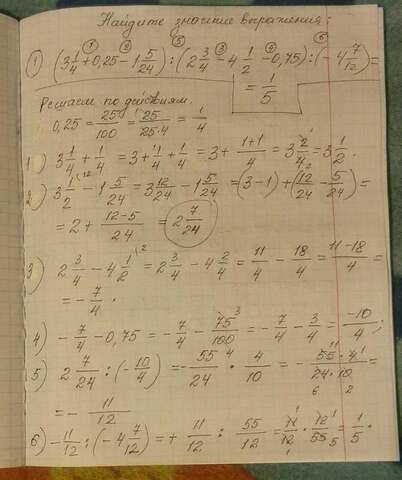 Найдите значение выражения:
1) (3 1/4 + 0,25 - 1 5/24) : (2 3/4 - 4 1/2 - 0,75) : (- 4 7/12) =
= 1/5
Решаем по действиям.
0,25 = 25/100 = 25/25·4 = 1/4
1) 3 1/4 + 1/4 = 3 + 1/4 + 1/4 = 3 + 1+1/4 = 3 2/4 = 3 1/2.
2) 3 1/2 - 1 5/24 = 3 12/24 - 1 5/24 = (3-1) + (12/24 - 5/24) =
= 2 + 12-5/24 = 2 7/24
3) 2 3/4 - 4 1/2 = 2 3/4 - 4 2/4 = 11/4 - 18/4 = 11-18/4 =
= - 7/4.
4) - 7/4 - 0,75 = - 7/4 - 75/100 = - 7/4 - 3/4 = -10/4;
5) 2 7/24 : (- 10/4) = - 55/24 · 4/10 = - 55·4/24·10 =
= - 11/12
6) - 11/12 : (- 4 7/12) = + 11/12 : 55/12 = 11/12 · 12/55 = 1/5.